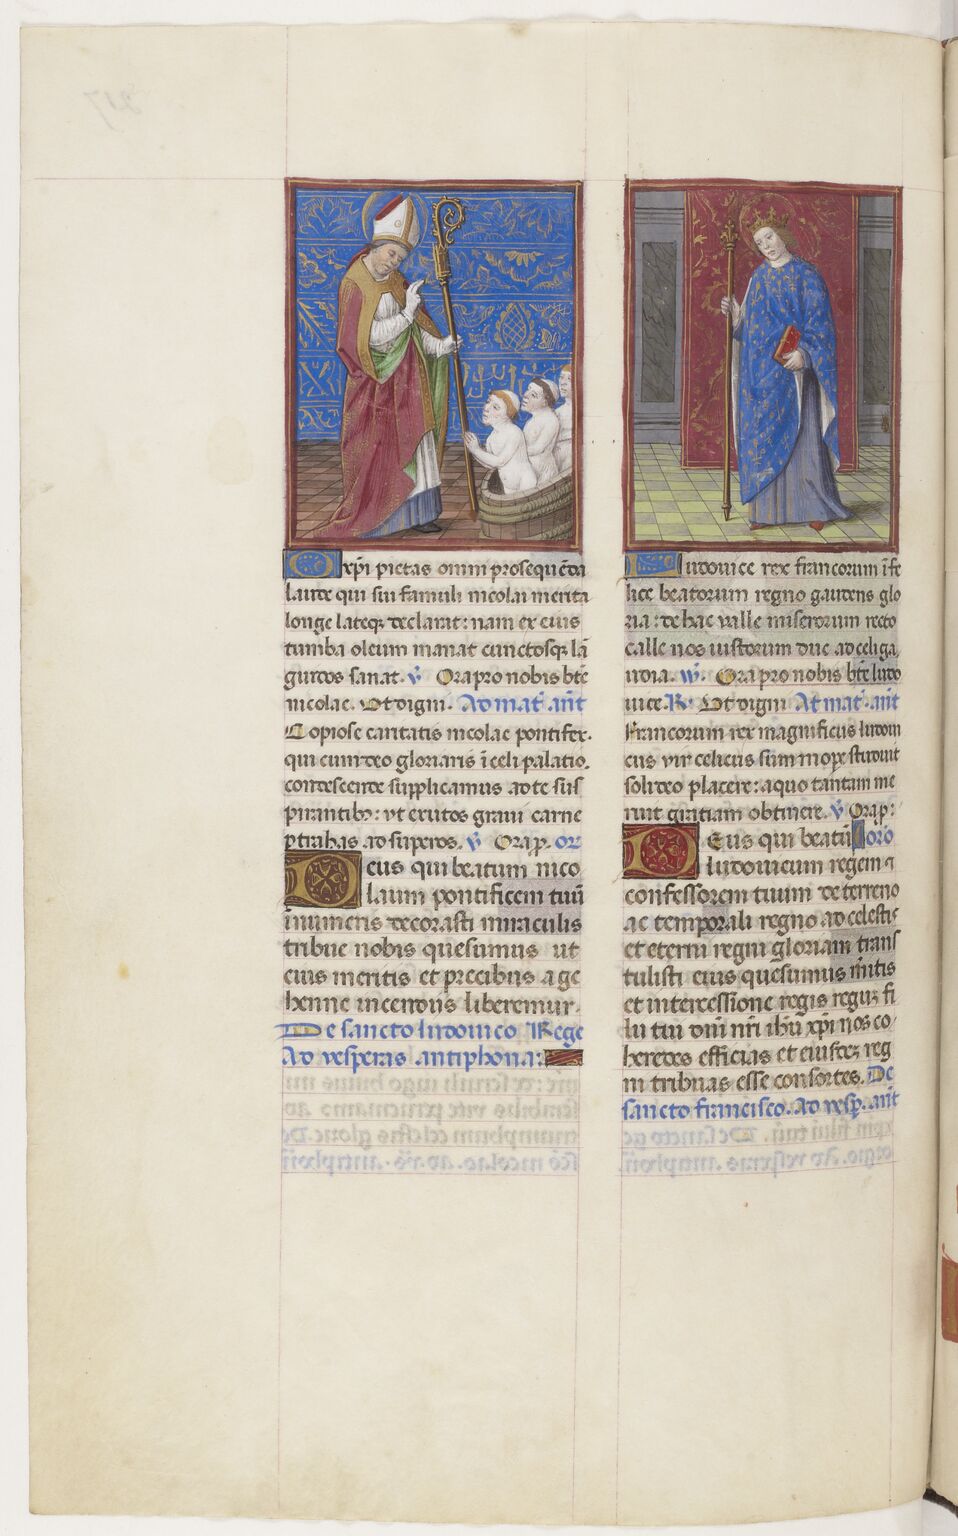 O xp̄i pietas omni prosequēda
laude qui sui famuli nicolai merita
longe lateqȝ declarat: nam ex eius
tumba oleum manat cunctosqȝ lā
guidos sanat. ℣ Ora pro nobis bt̄e
nicolae. Ut digni. Ad mat̄. ant̄
Copiose caritatis nicolae pontifex.
qui cum deo gloriaris ī celi palatio.
condescende supplicamus ad te sus
pirantibȝ: ut exutos graui carne
ꝓtrahas ad superos. ℣ Ora ꝓ. or̄
Deus qui beatum nico
laum pontificem tuū
inumeris decorasti miraculis
tribue nobis quesumus ut
eius meritis et precibus a ge
henne incendiis liberemur.
De sancto ludouico Rege
Ad vesperas antiphona:
Ludouice rex francorum ī fe
lice beatorum regno gaudens glo
ria: de hac ualle miserorum recto
calle nos iustorum duc ad celi ga
udia. ℣. Ora pro nobis bt̄e ludo
uice. ℟ Ut digni Ad mat̄. ant̄
Francorum rex magnificus ludoui
cus vir celicus summope studuit
soli deo placere: a quo tantam me
ruit gratiam obtinere. ℣ Ora p:
Deus qui beatū orō
ludouicum regem ⁊
confessorem tuum de terreno
ac temporali regno ad celestis
et eterni regni gloriam trans
tulisti eius quesumus m̄itis
et intercessione regis regūȝ fi
lii tui dn̄i nr̄i ih̄u xp̄i nos co
heredes efficias et eiusdeȝ reg
ni tribuas esse consortes. De
sancto francisco. Ad vesp̄. ant̄